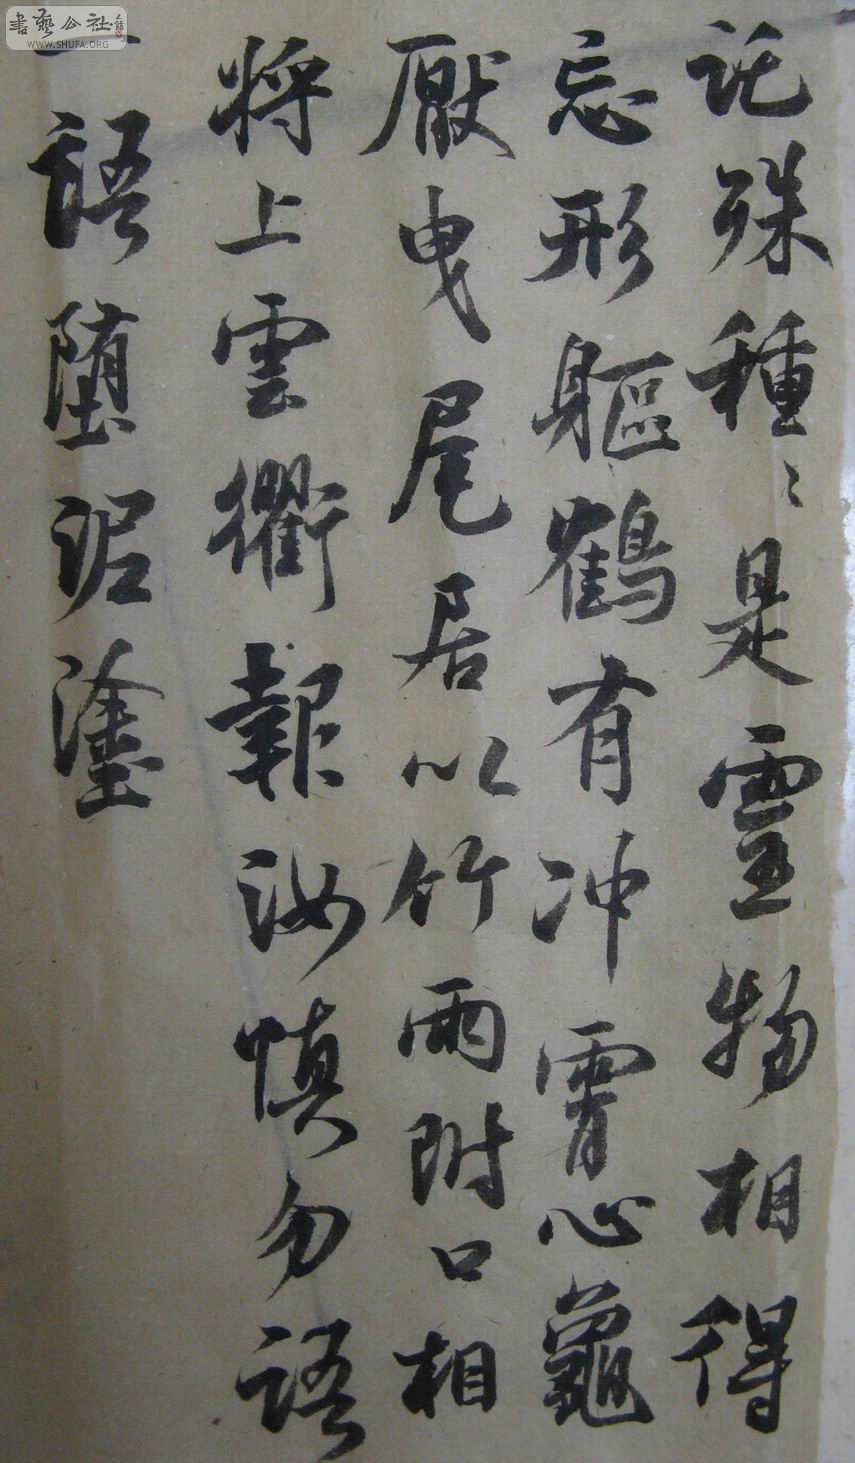 託殊種種是靈物相得
忘形軀鶴有冲霄心龜
厭曳尾居以竹兩附口相
将上雲衢報汝慎勿語
一語堕泥塗
書藝公社
WWW.SHUFA.ORG